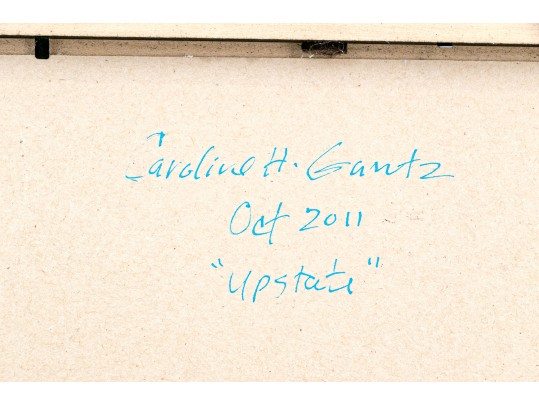 Caroline H. Gantz
Oct 2011
"Upstate"